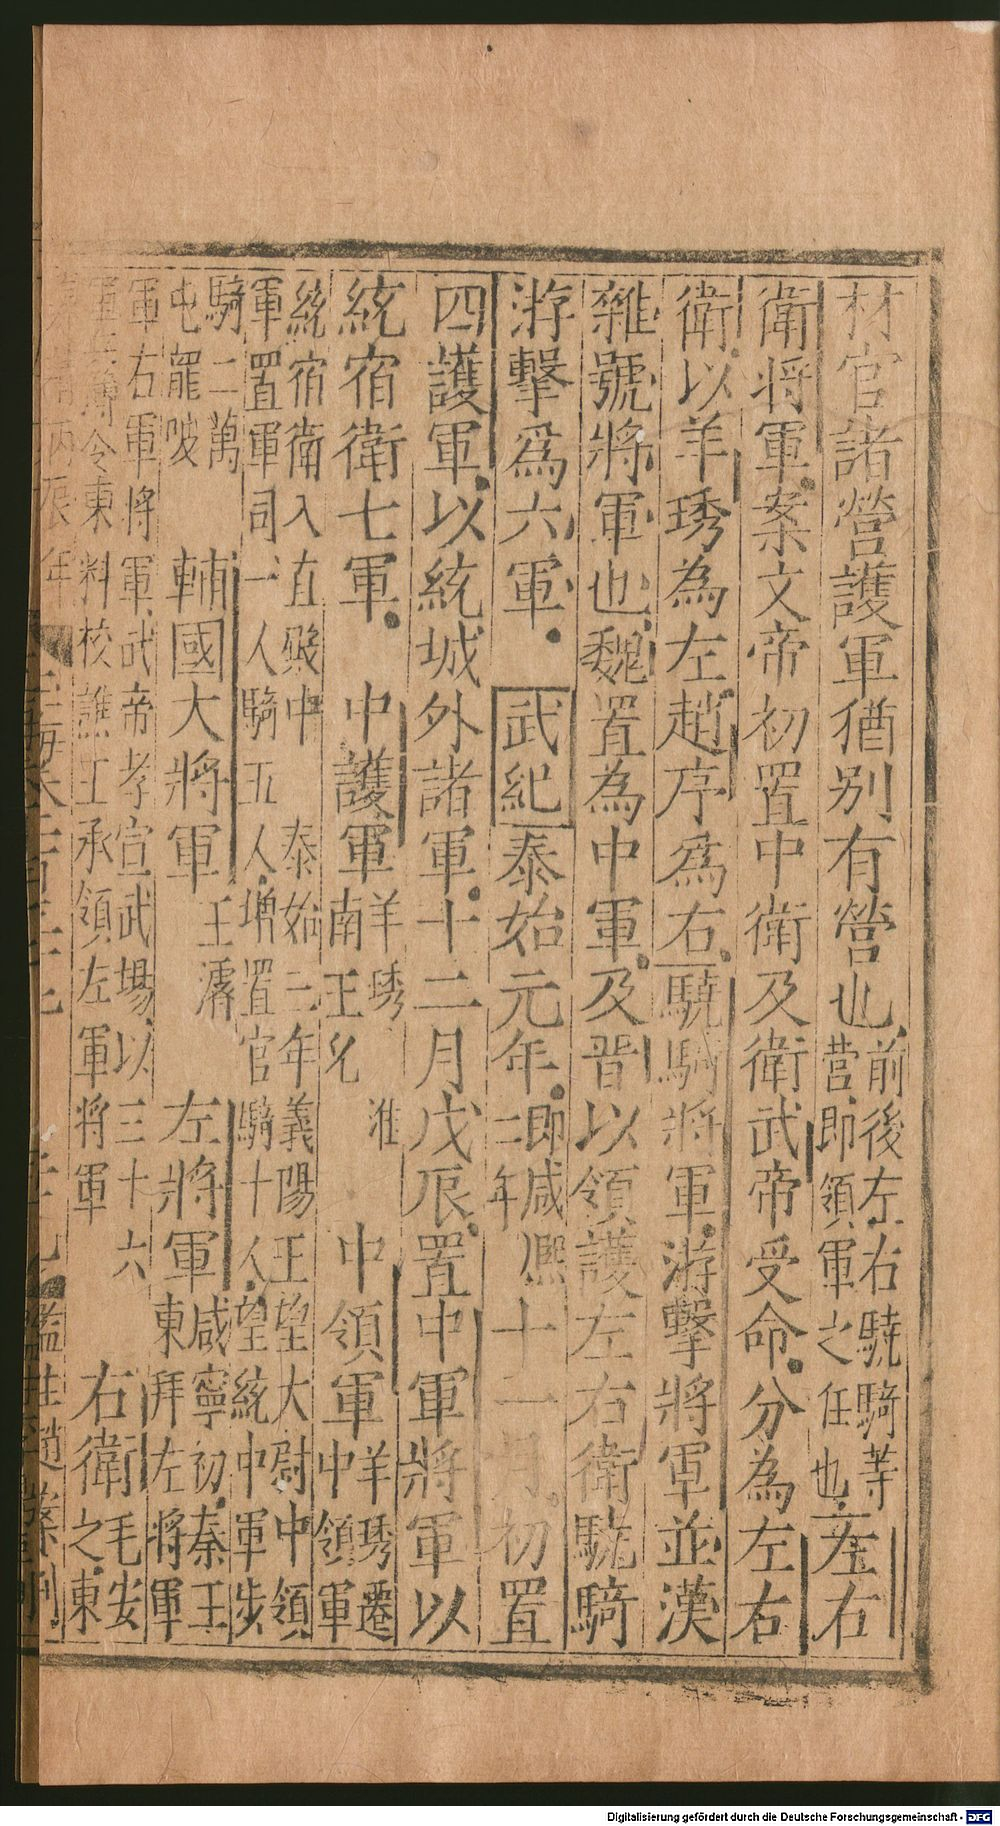 材官諸營護軍猶別有營也前後左右驍騎等營即領軍之任也左右
衛將軍案文帝初置中衛及衛武帝受命分為左右
衛以羊琇為左趙序爲右驍騎將軍游擊將軍並漢
雜號將軍也魏置為中軍及晉以領護左右衛驍騎
游擊爲六軍武紀泰始元年即咸熙二年十二月初置
四護軍以統城外諸軍十二月戊辰置中軍將軍以
統宿衛七軍中護軍羊琇南王允淮中領軍羊琇遷中領軍
統宿衛入直殿中泰始二年義陽王望大尉中領
軍置軍司一人騎五人增置官騎十人望統中軍步
騎二萬屯罷陂輔國大將軍王濬左將軍咸寧初秦王東拜左將軍
軍右軍將軍武帝孝宣武場以三十六
令東料校譙王承領左軍將軍右衛毛安之東
丙辰年
Digitalisierung gefördert durch die Deutsche Forschungsgemeinschaft - DFG